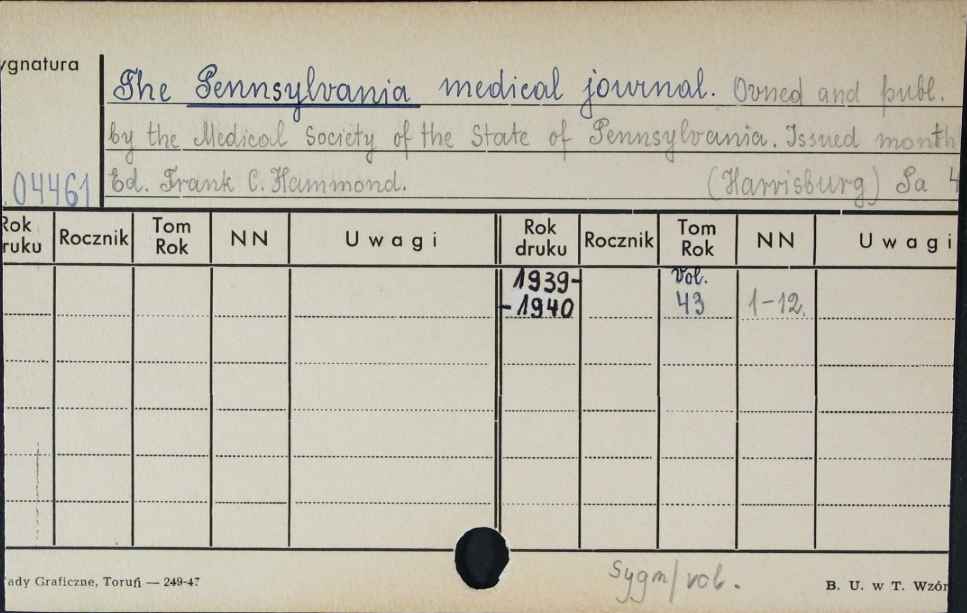 ygnatura
The Pennsylvania medical journal. Owned and publ.
by the Medical Society of the State of Pennsylvania. Issued month
04461 Ed. Frank C. Hammond. (Harrisburg) Pa 4
Rok ruku Rocznik Tom Rok NN Uwagi Rok druku Rocznik Tom Rok NN Uwagi
1939- Vol.
-1940 43 1-12.
ady Graficzne, Toruń — 249-47 Sygn/vol. B. U. w T. Wzór